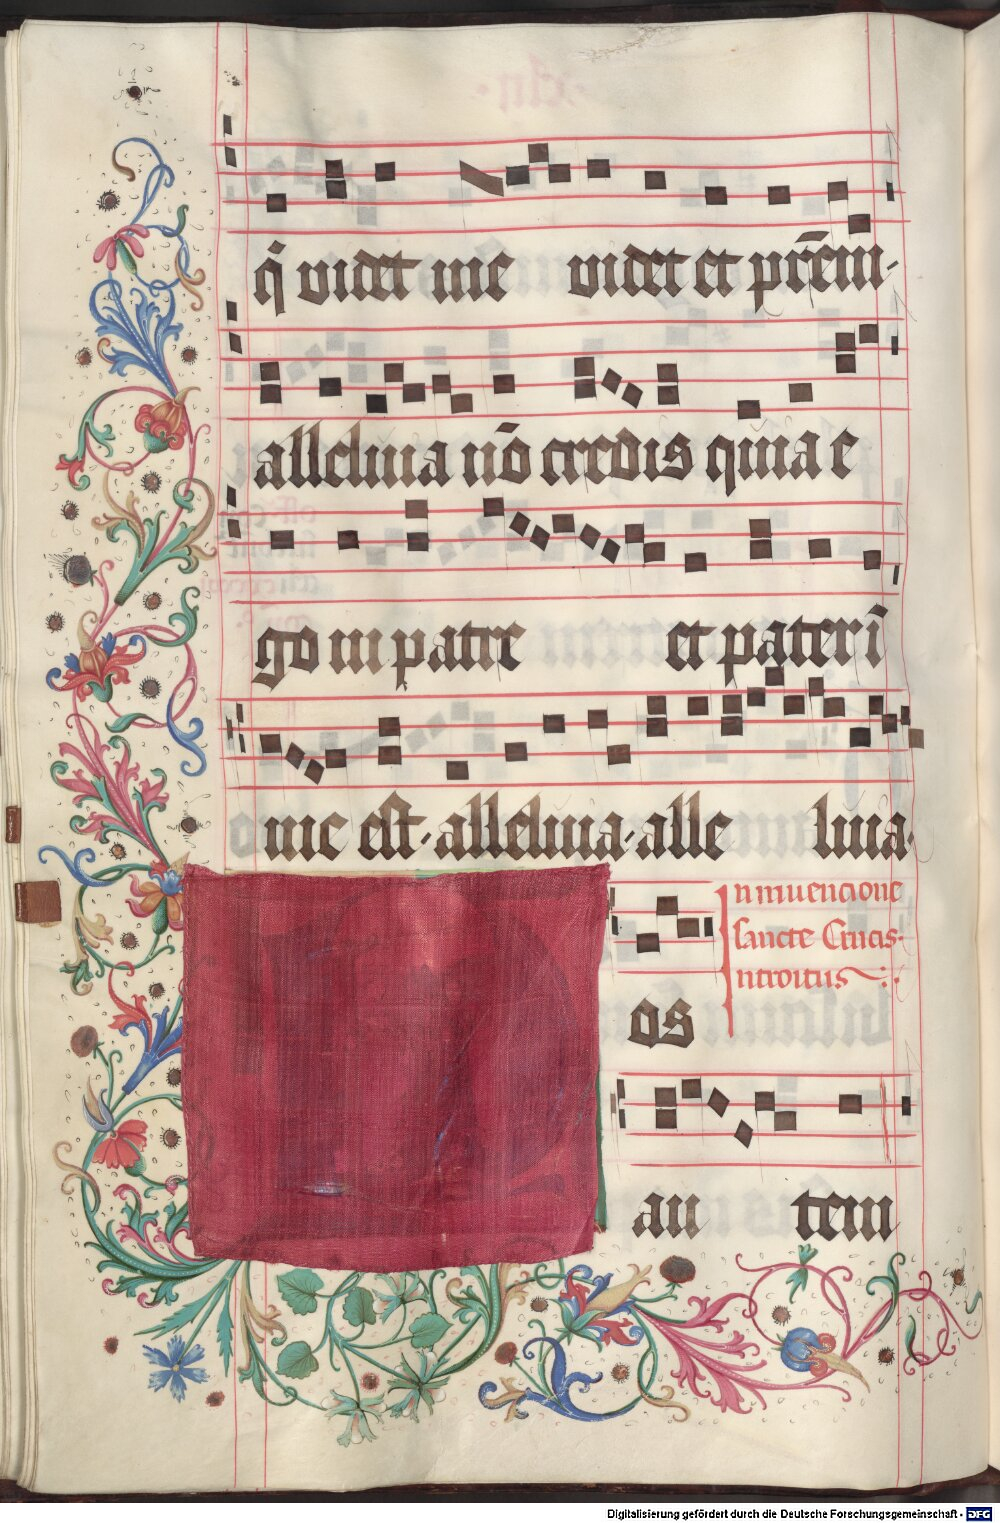 q̃ videt me videt et pr̄em-
alleluia nō credis quia e
go in patre et pater ī
me est· alleluia· alle luia·
In inuencione
sancte Crucis·
Introitus
os
au tem
Digitalisierung gefördert durch die Deutsche Forschungsgemeinschaft - DFG